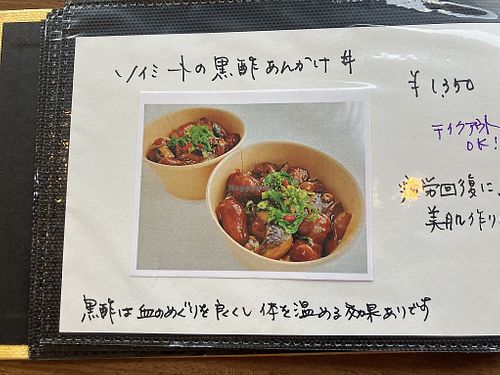 ソイミートの黒酢あんかけ丼
¥1,350
テイクアウト
OK!
疲労回復に、
美肌作り
黒酢は血のめぐりを良くし体を温める効果ありです